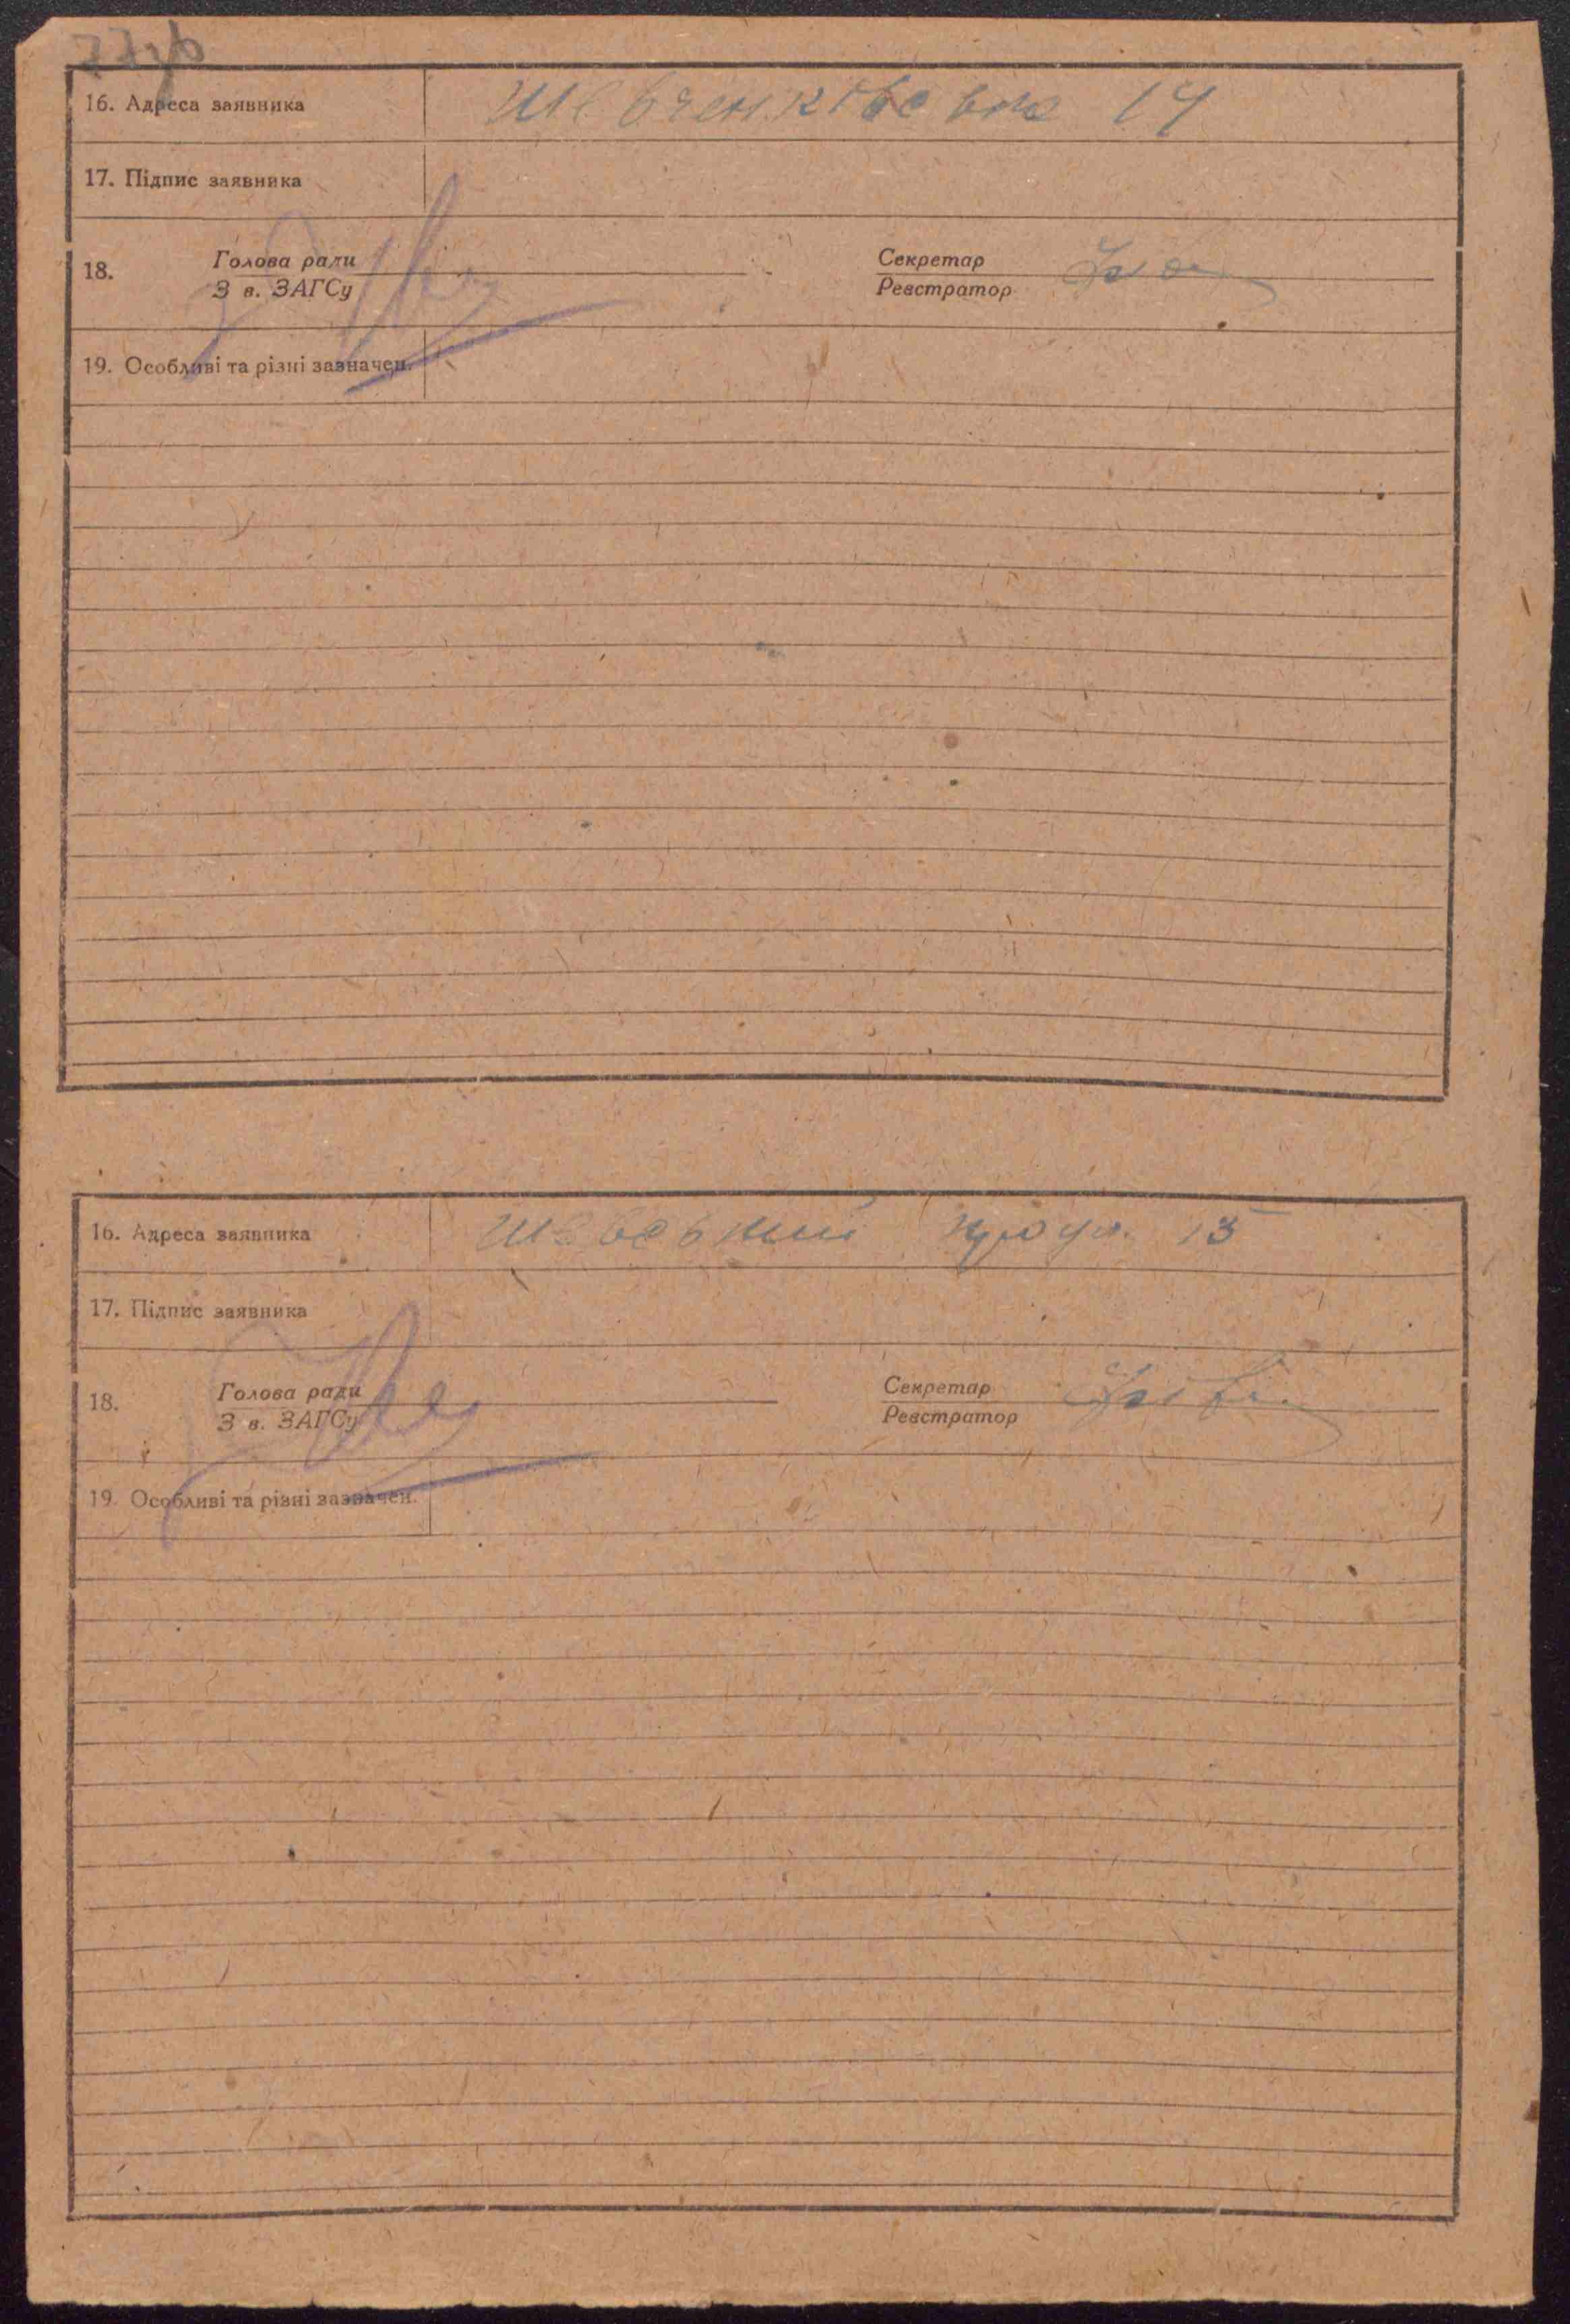 16. Адреса заявника Шевченківська 14
17. Підпис заявника
18. Голова ради Секретар
З в. ЗАГСу Реєстратор
19. Особливі та різні зазначен.
16. Адреса заявника 13
17. Підпис заявника
18. Голова ради Секретар
З в. ЗАГСу Реєстратор
19. Особливі та різні зазначен.